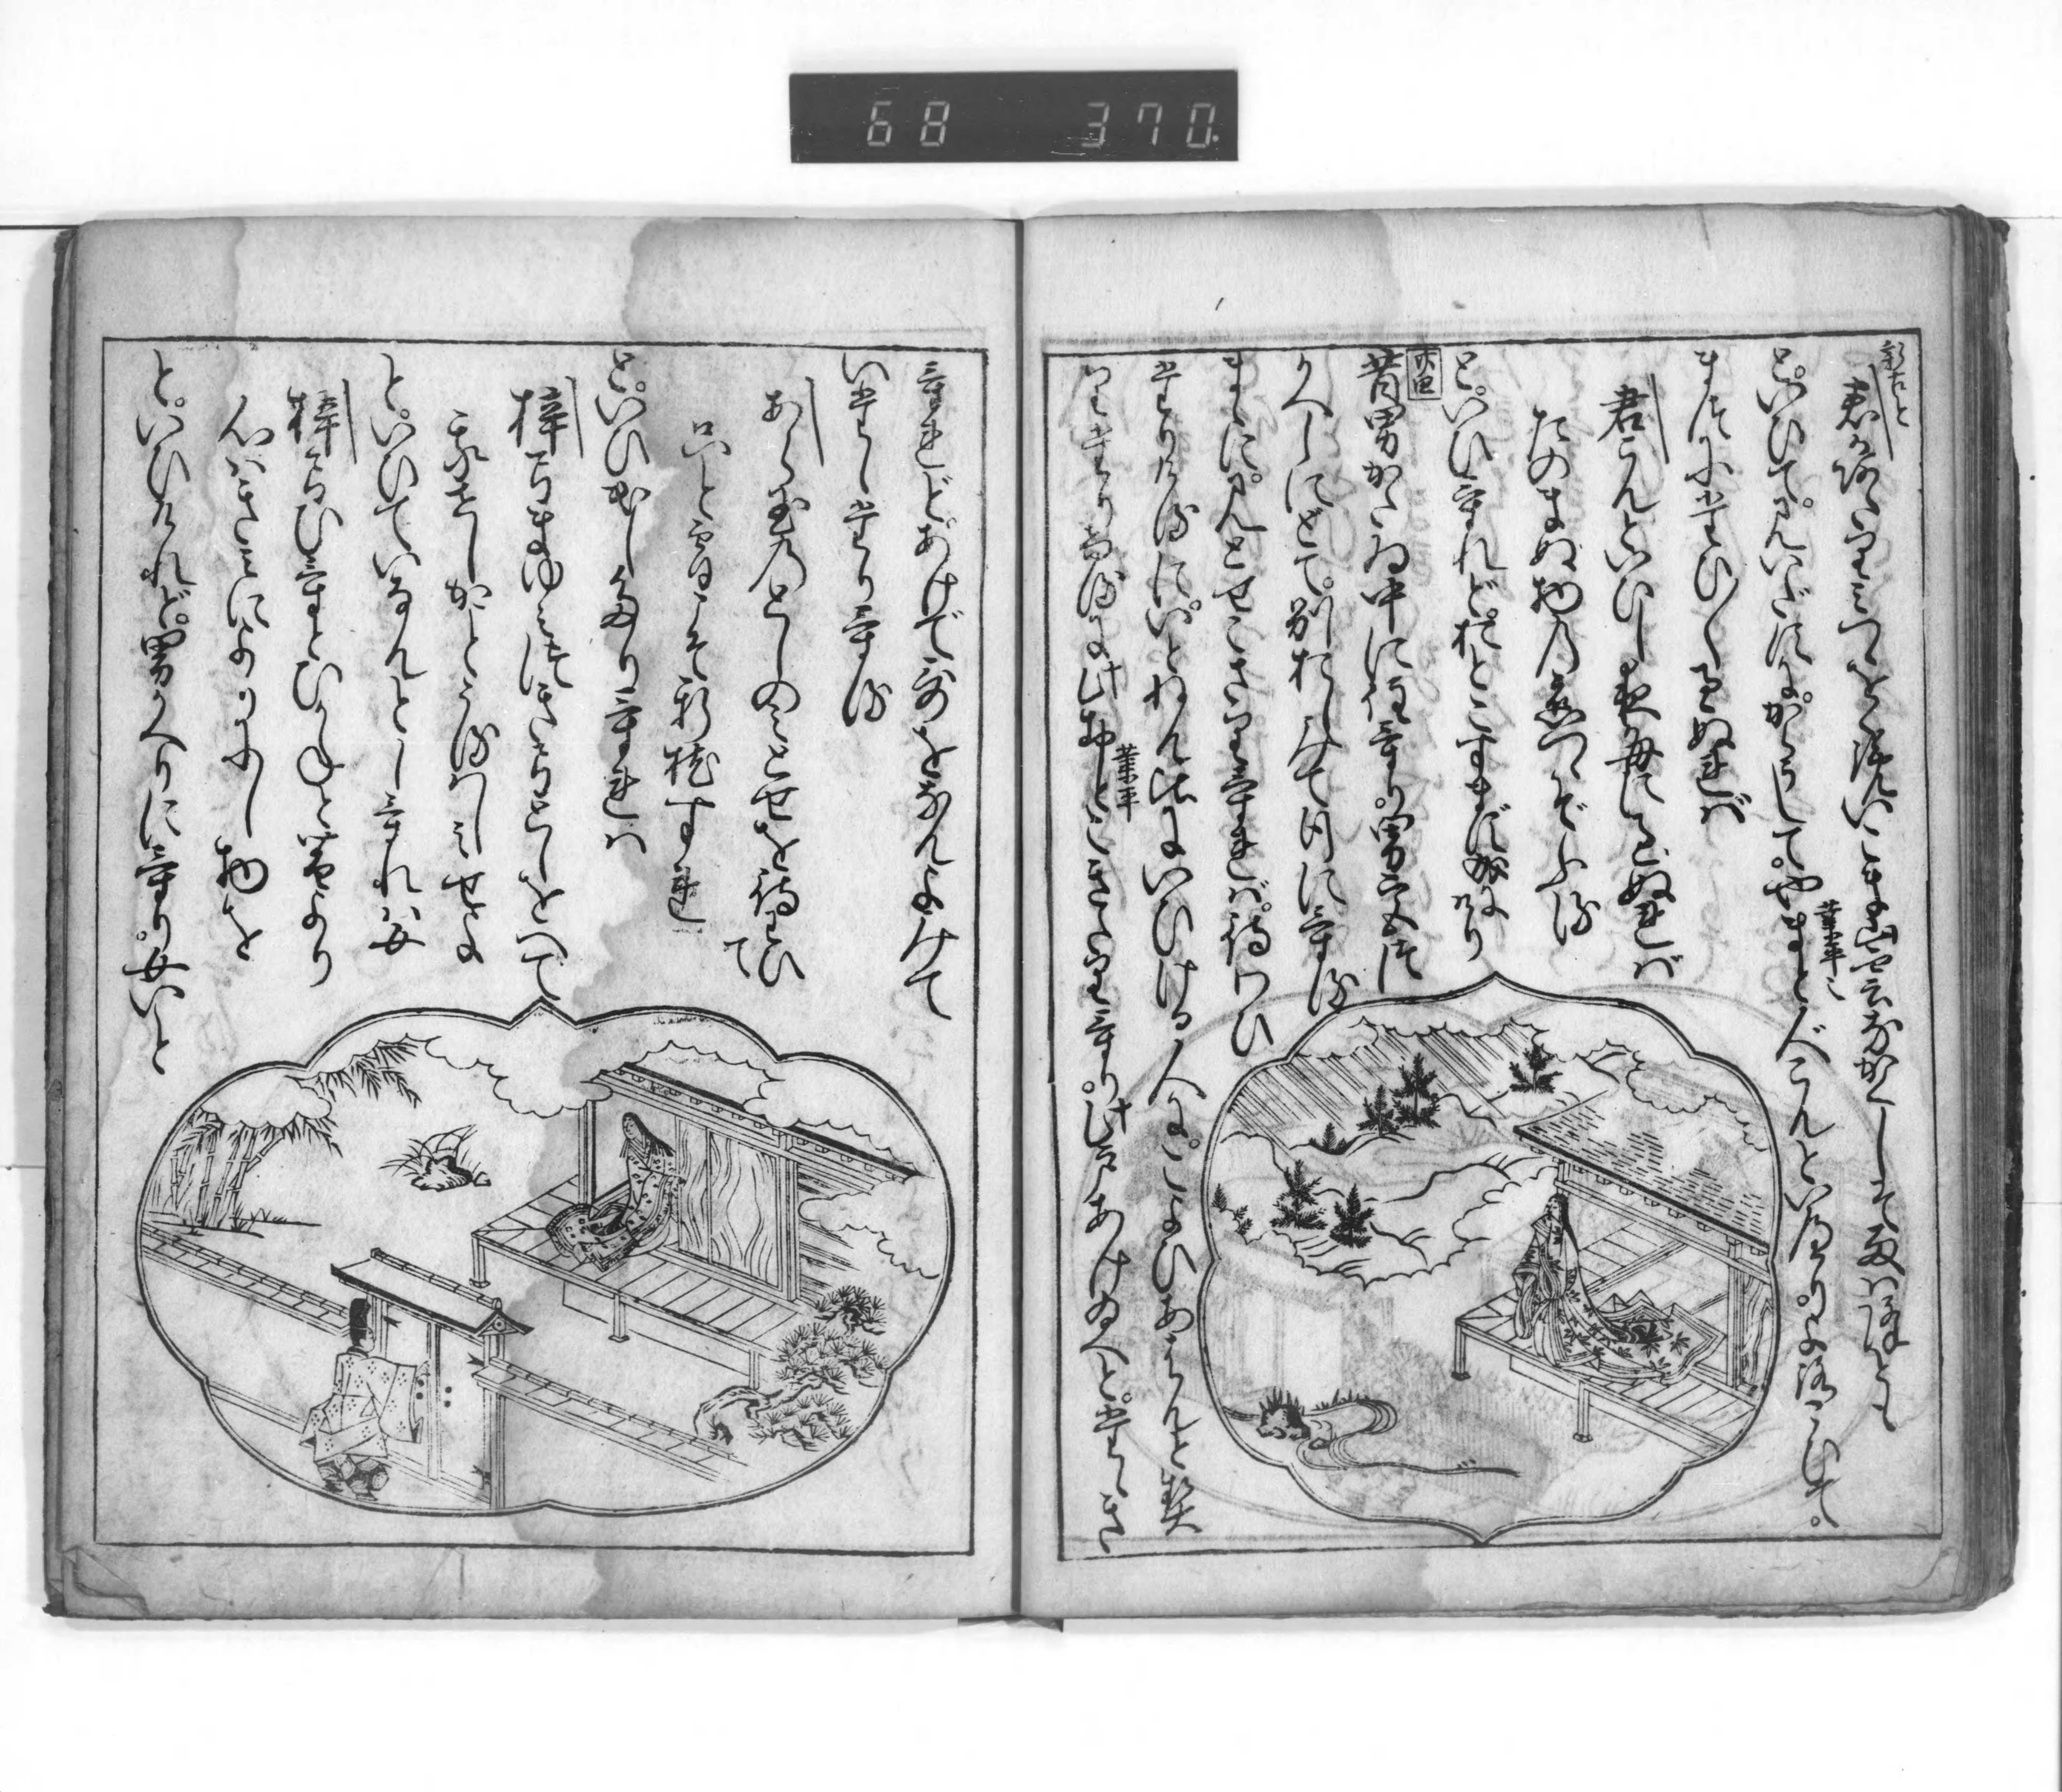 68 370
新古今
君があたりみつゝをらんいこま山雲なかくしそ雨はふるとも
といひて。見いだすに。からうして。やまと人こんといへり。よろこびて。
業平こ
まつにたび〳〵過ぬれば
君こんといひし夜毎に過ぬれば
たのまぬ物の恋つゝぞふる
といひけれど。おとこすまず成にけり
廿四
昔男かたゐ中に住けり。男宮づ
かへしにとて。別おしみて行にける
まゝに。三とせこざりければ。待わひ
たりけるに。いとねん比にいひける人に。こよひあはんと契
りたりけるに此おとこきたりけり。此戸あけ給へと。たゝき
業平
けれど。あけで歌をなんよみて
いだしたりける
あら玉のとしの三とせを待わひ
て
只こよひこそ新枕すれ
と。いひ出したりければ
梓弓まゆみ槻弓としをへて
我せしがことうるはしみせよ
と。いひていなんとしければ女
梓弓ひけどひかねど昔より
心はきみによりにし物を
と。いひけれど。男かへりにけり。女いと